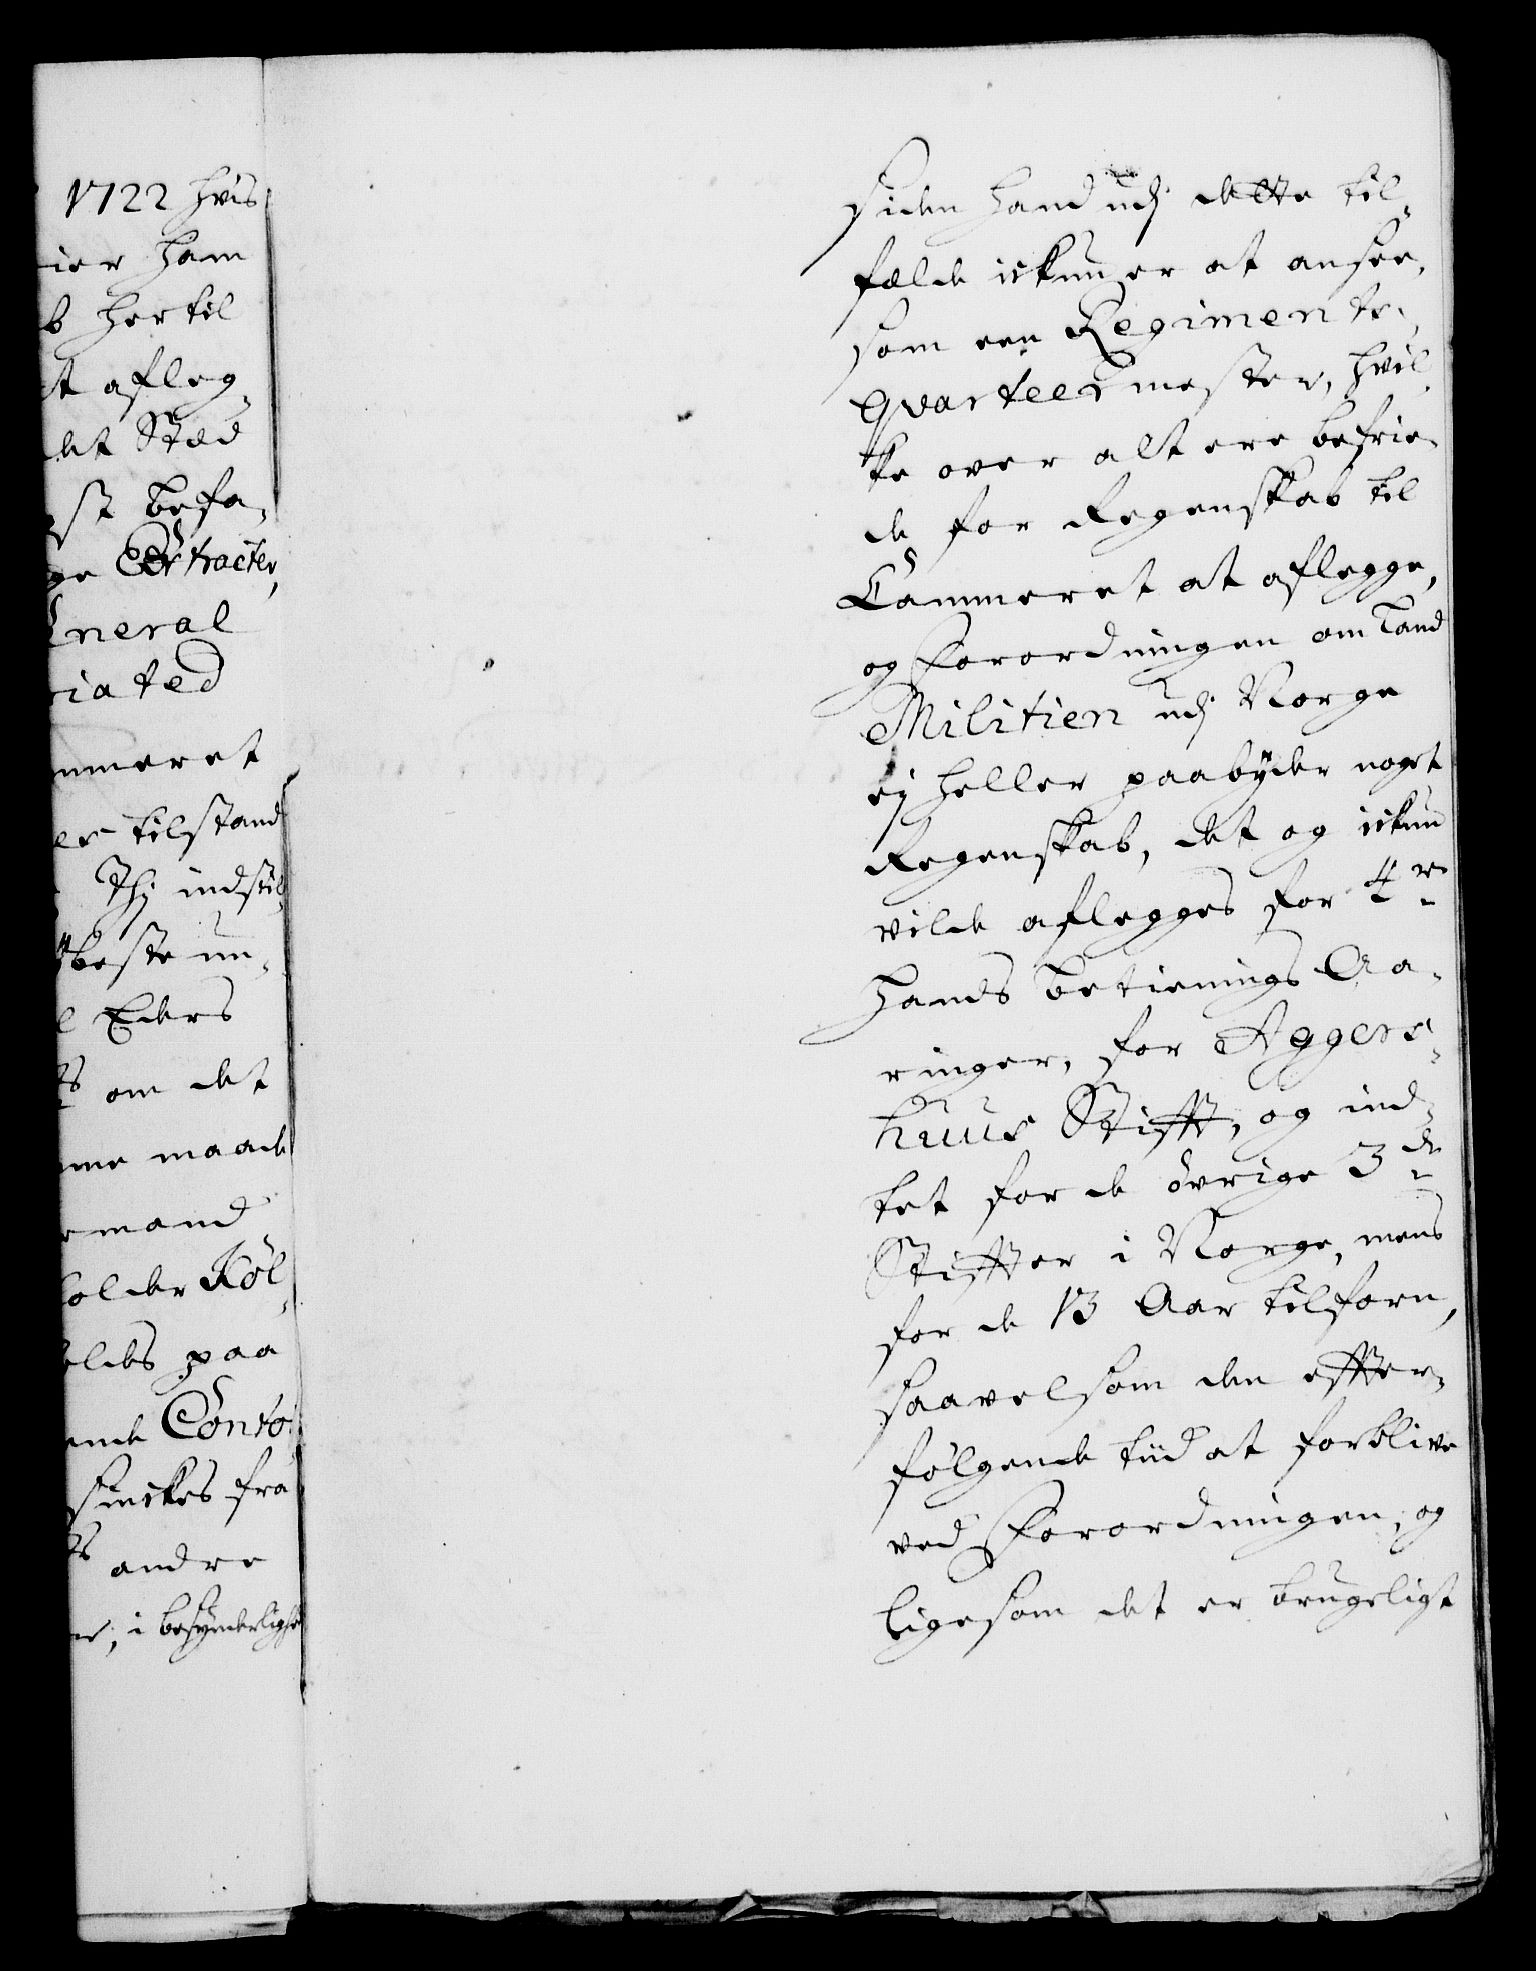 1722 hvis
ier ham
b hertil
t afleg-
det Stæd
st befa-
ge Extracter,
eneral
iated
mmeret
er tilstand
Thj indstil-
beste un-
l Eders
ts om det
nne maade
emand
holder Køl-
eldes paa
ende Conto-
sinckes fra
ts andre
er, i besynderlighe
siden hand udj dette til-
fælde ickun er at ansee,
som een Regiments-
Qvarteermester, hvil-
ke over alt ere befrie-
de for Regenskab til
Cammeret at aflegge,
og Forordningen om Land
Militien udj Norge
ej heller paabyder noget
Regenskab, det og ickun
vilde aflegges for 4re
hands betienings Aa-
ringer, for Aggers-
huus Stifft, og ind-
tet for de övrige 3de
Stiffter i Norge, mens
for de 13 Aar tilforn,
saavelsom den effter-
følgende tiid at forblive
ved Forordningen, og
ligesom det er brugeligt